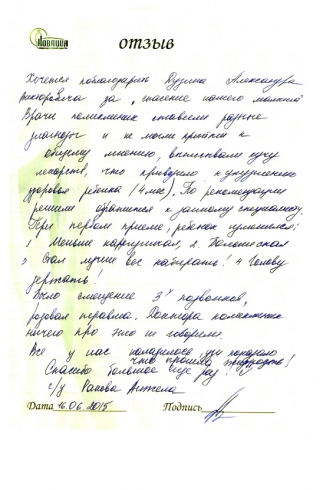 Ловация
ОТЗЫВ
Хочется поблагодарить Дузина Александра
Викторовича за "спасение нашего малыша"
Врачи поликлиник ставили разные
диагнозы и не могли прийти к
общему мнению, выписывали кучу
лекарств, что приводило к ухудшению
здоровья ребенка (4 мес). По рекомендации
решили обратится к данному специалисту.
При первом приеме, ребенок изменился:
Меньше капризничал,
Стал лучше вес набирать! и Голову
держать!
Было смещение 3х позвонков,
родовая травма. Доктора поликлиник
ничего про это не говорили.
Все у нас наладилось,
что прошли
Спасибо большое еще раз!
с/у Ракова Анжела
Дата 16.06.2015 Подпись